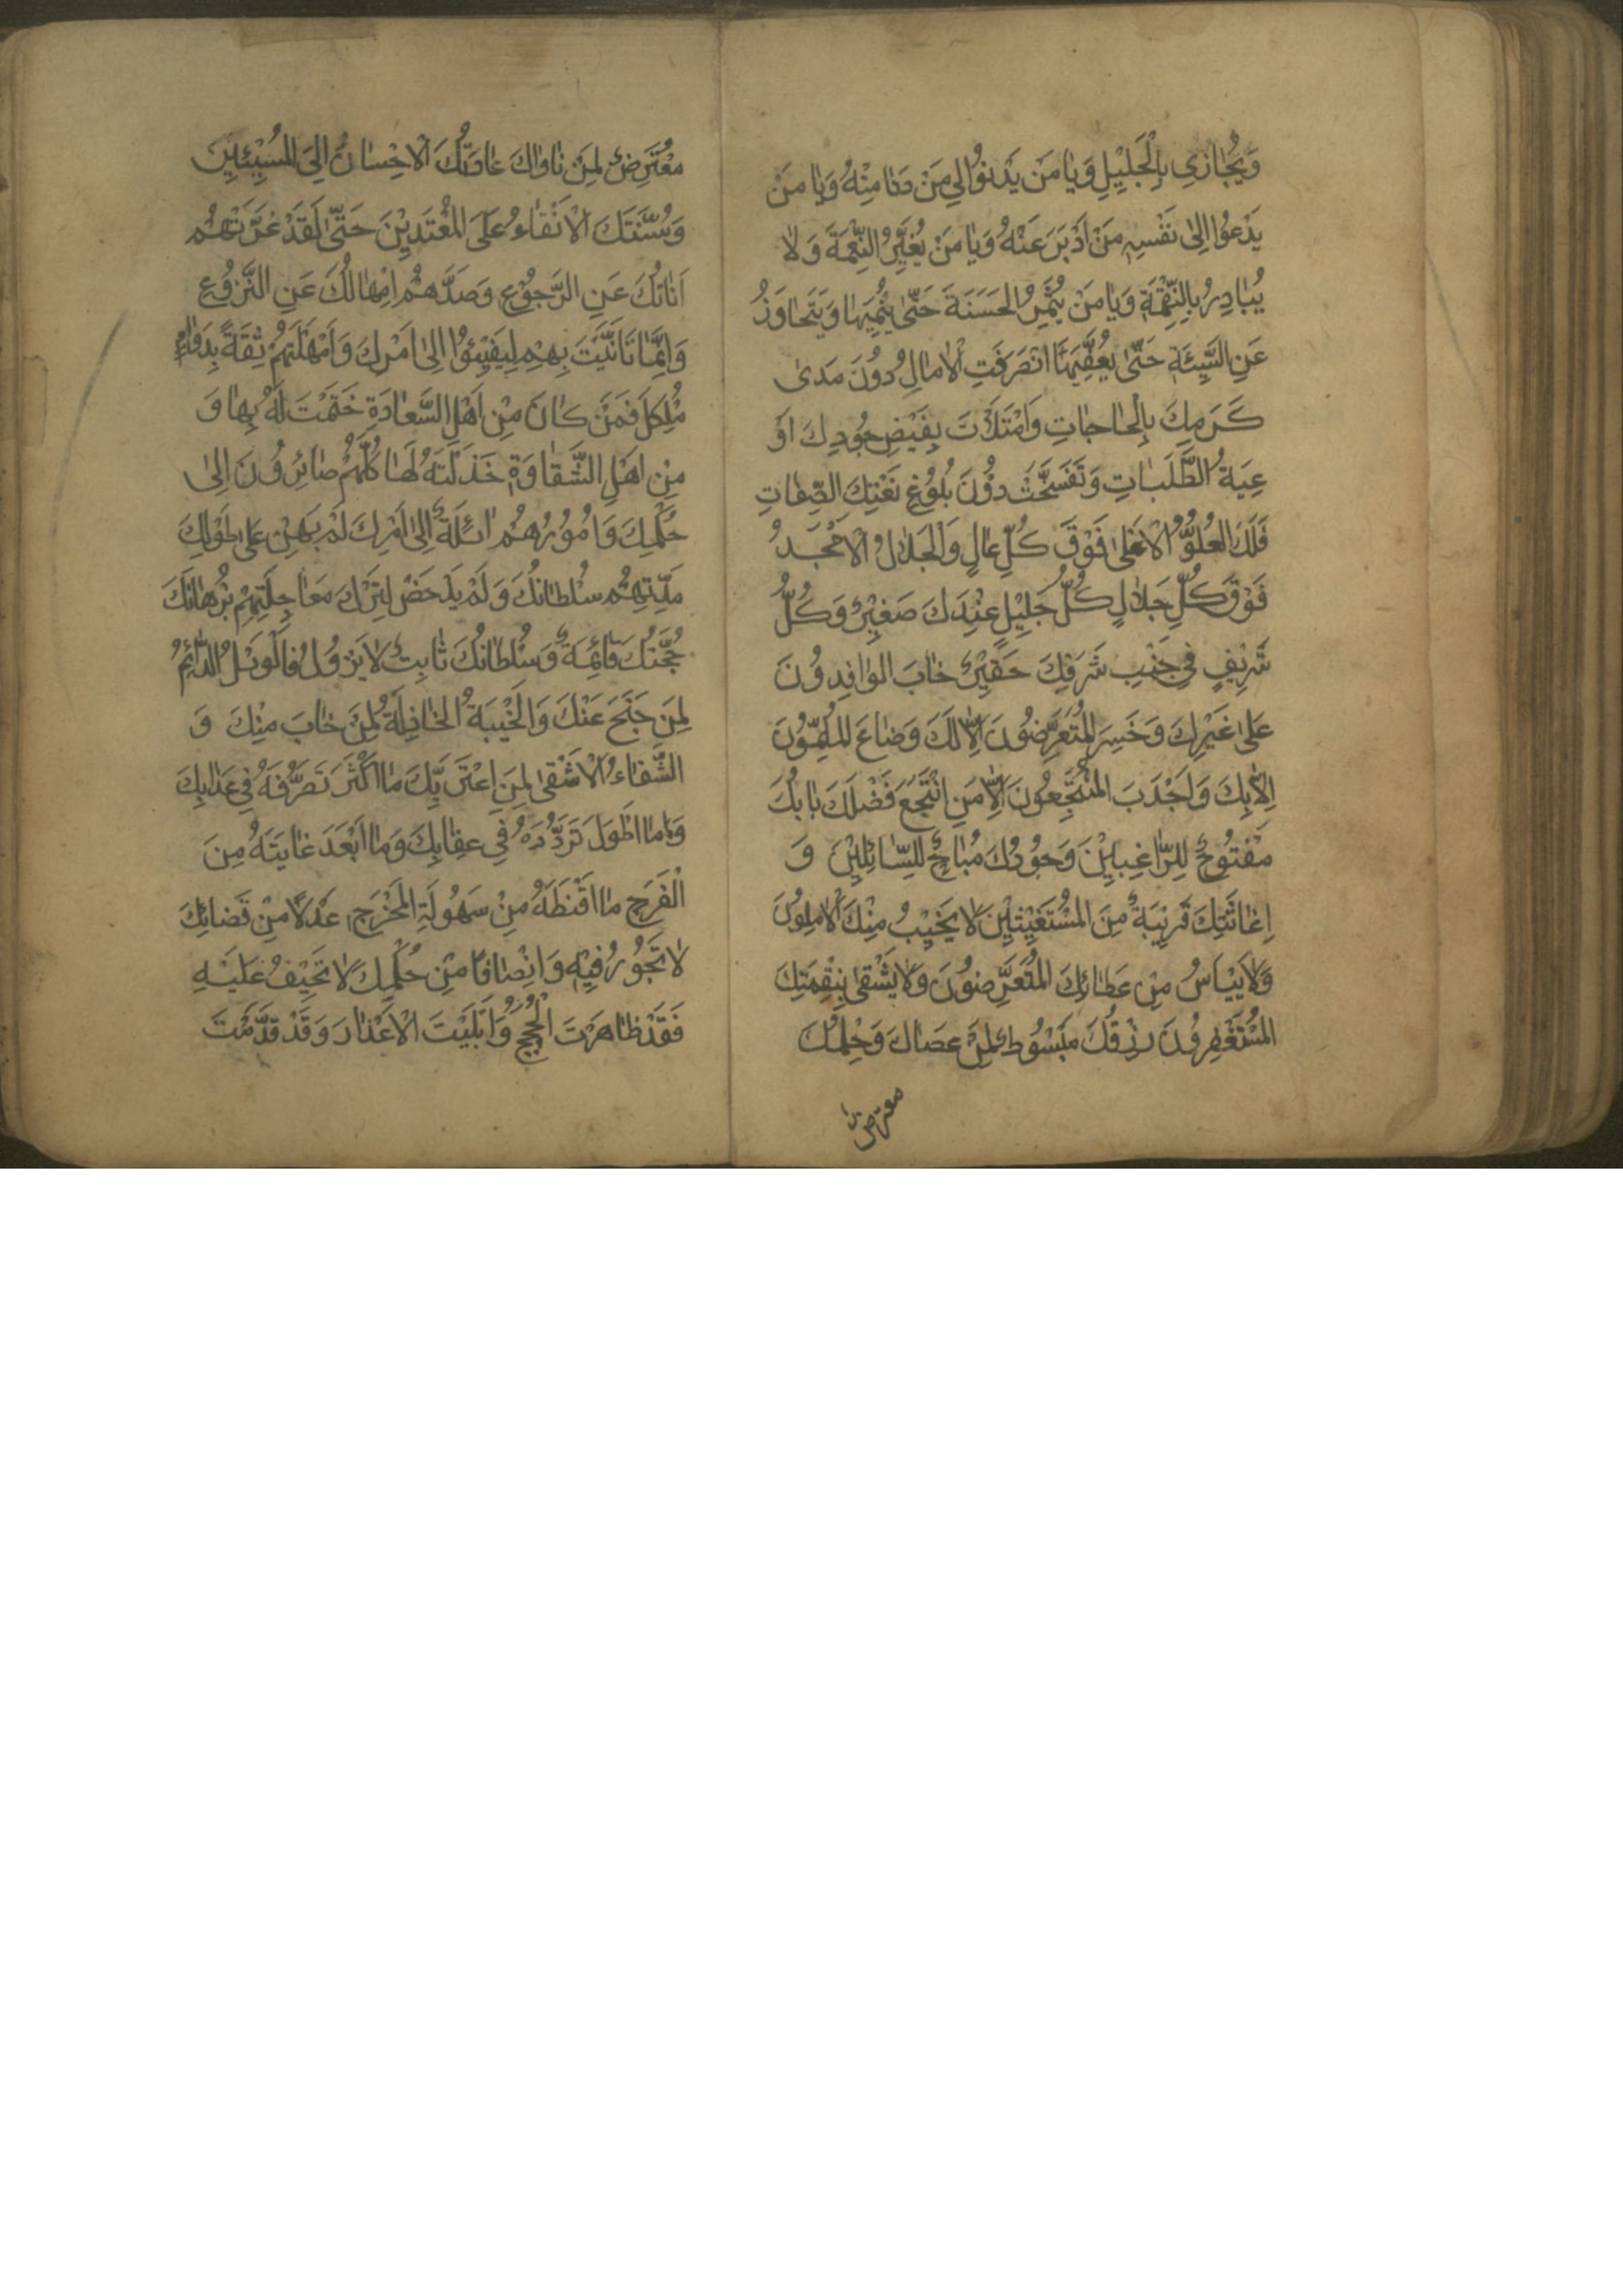 وَيُجَازِي بِالْجَلِيْلِ وَيَا مَنْ يَدْنُوْا اِلٰى مَنْ دَنَا مِنْهُ وَيَا مَنْ
يَدْعُوْا اِلٰى نَفْسِهِ مَنْ اَدْبَرَ عَنْهُ وَيَا مَنْ يُغَيِّرُ النِّعْمَةَ وَلَا
يُبَادِرُ بِالنِّقْمَةِ وَيَا مَنْ يُثَمِّرُ الْحَسَنَةَ حَتّٰى يُنْمِيَهَا وَيَتَجَاوَزُ
عَنِ السَّيِّئَةِ حَتّٰى يُعَفِّيَهَا انْصَرَفَتِ الْاٰمَالُ دُوْنَ مَدٰى
كَرَمِكَ بِالْحَاجَاتِ وَامْتَلَاَتْ بِفَيْضِ جُوْدِكَ اَوْ
عِيَةُ الطَّلَبَاتِ وَتَفَسَّخَتْ دُوْنَ بُلُوْغِ نَعْتِكَ الصِّفَاتِ
فَلَكَ الْعُلُوُّ الْاَعْلٰى فَوْقَ كُلِّ عَالٍ وَالْجَلَالُ الْاَمْجَدُ
فَوْقَ كُلِّ جَلَالٍ كُلُّ جَلِيْلٍ عِنْدَكَ صَغِيْرٌ وَكُلُّ
شَرِيْفٍ فِيْ جَنْبِ شَرَفِكَ حَقِيْرٌ خَابَ الْوَافِدُوْنَ
عَلٰى غَيْرِكَ وَخَسِرَ الْمُتَعَرِّضُوْنَ اِلَّا لَكَ وَضَاعَ الْمُلِمُّوْنَ
اِلَّا بِكَ وَاَجْدَبَ الْمُنْتَجِعُوْنَ اِلَّا مَنِ انْتَجَعَ فَضْلَكَ بَابُكَ
مَفْتُوْحٌ لِلرَّاغِبِيْنَ وَجُوْدُكَ مُبَاحٌ لِلسَّائِلِيْنَ وَ
اِغَاثَتُكَ قَرِيْبَةٌ مِنَ الْمُسْتَغِيْثِيْنَ لَا يَخِيْبُ مِنْكَ الْاٰمِلُوْنَ
وَلَا يَيْاَسُ مِنْ عَطَائِكَ الْمُتَعَرِّضُوْنَ وَلَا يَشْقٰى بِنِقْمَتِكَ
الْمُسْتَغْفِرُوْنَ رِزْقُكَ مَبْسُوْطٌ لِمَنْ عَصَاكَ وَحِلْمُكَ
معترض
مُعْتَرِضٌ لِمَنْ نَاوَاكَ عَادَتُكَ الْاِحْسَانُ اِلَى الْمُسِيْئِيْنَ
وَسُنَّتُكَ الْاِبْقَاءُ عَلَى الْمُعْتَدِيْنَ حَتّٰى لَقَدْ غَرَّتْهُمْ
اَنَاتُكَ عَنِ الرُّجُوْعِ وَصَدَّهُمْ اِمْهَالُكَ عَنِ النُّزُوْعِ
وَاِنَّمَا تَاَنَّيْتَ بِهِمْ لِيَفِيْئُوْا اِلٰى اَمْرِكَ وَاَمْهَلْتَهُمْ ثِقَةً بِدَوَامِ
مُلْكِكَ فَمَنْ كَانَ مِنْ اَهْلِ السَّعَادَةِ خَتَمْتَ لَهُ بِهَا وَ
مِنْ اَهْلِ الشَّقَاوَةِ خَذَلْتَهُ لَهَا كُلُّهُمْ صَائِرُوْنَ اِلٰى
حُكْمِكَ وَاُمُوْرُهُمْ اٰئِلَةٌ اِلٰى اَمْرِكَ لَمْ يَهِنْ عَلٰى طُوْلِ
مُدَّتِهِمْ سُلْطَانُكَ وَلَمْ يَدْحَضْ لِتَرْكِ مُعَاجَلَتِهِمْ بُرْهَانُكَ
حُجَّتُكَ قَائِمَةٌ وَسُلْطَانُكَ ثَابِتٌ لَا يَزُوْلُ فَالْوَيْلُ الدَّائِمُ
لِمَنْ جَنَحَ عَنْكَ وَالْخَيْبَةُ الْخَاذِلَةُ لِمَنْ خَابَ مِنْكَ وَ
الشَّقَاءُ الْاَشْقٰى لِمَنِ اغْتَرَّ بِكَ مَا اَكْثَرَ تَصَرُّفَهُ فِيْ عَذَابِكَ
وَمَا اَطْوَلَ تَرَدُّدَهُ فِيْ عِقَابِكَ وَمَا اَبْعَدَ غَايَتَهُ مِنَ
الْفَرَجِ مَا اَقْنَطَهُ مِنْ سَهُوْلَةِ الْمَخْرَجِ عَدْلًا مِنْ قَضَائِكَ
لَا تَجُوْرُ فِيْهِ وَاِنْصَافًا مِنْ حُكْمِكَ لَا تَحِيْفُ عَلَيْهِ
فَقَدْ ظَاهَرْتَ الْحُجَجَ وَاَبْلَيْتَ الْاَعْذَارَ وَقَدْ قَدَّمْتَ